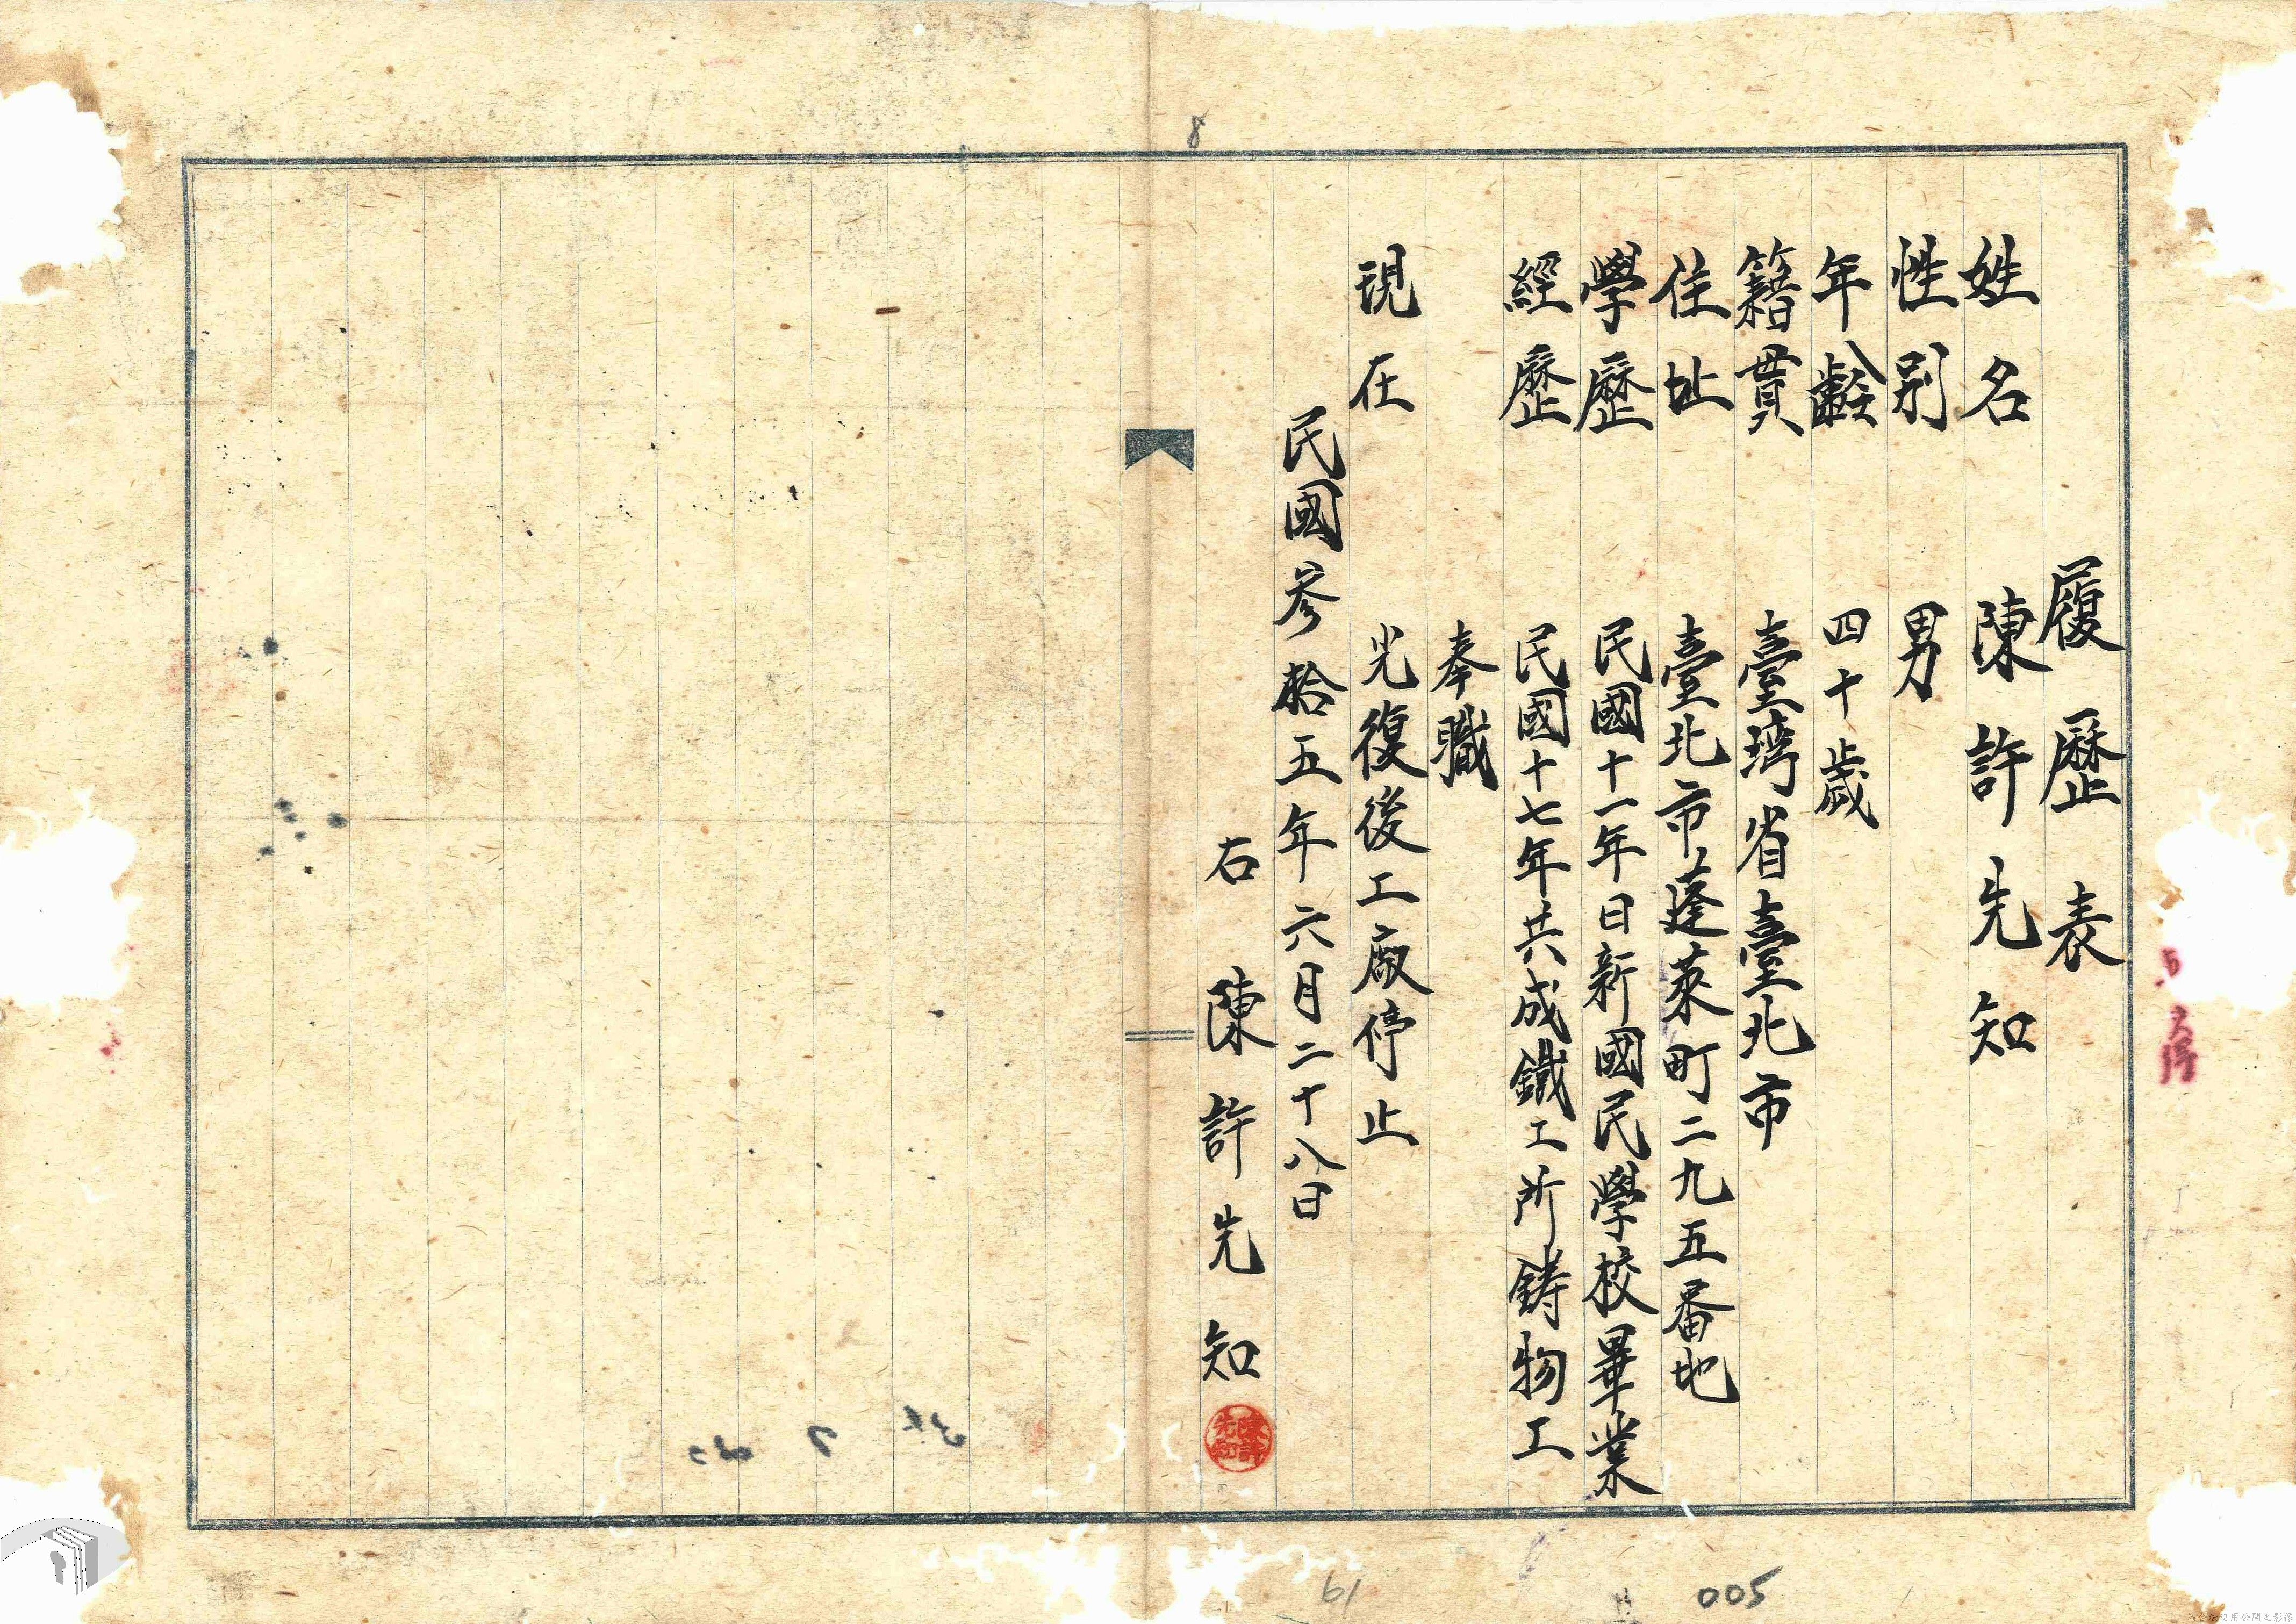 履歷表
姓名 陳許先知
性別 男
年齡 四十歲
籍貫 臺灣省臺北市
住址 臺北市蓬萊町二九五番地
學歷 民國十一年日新國民學校畢業
經歷 民國十七年共成鐵工所鑄物工
奉職
現在 光復後工廠停止
民國參拾五年六月二十八日
右 陳許先知
陳許先知
8
61
005